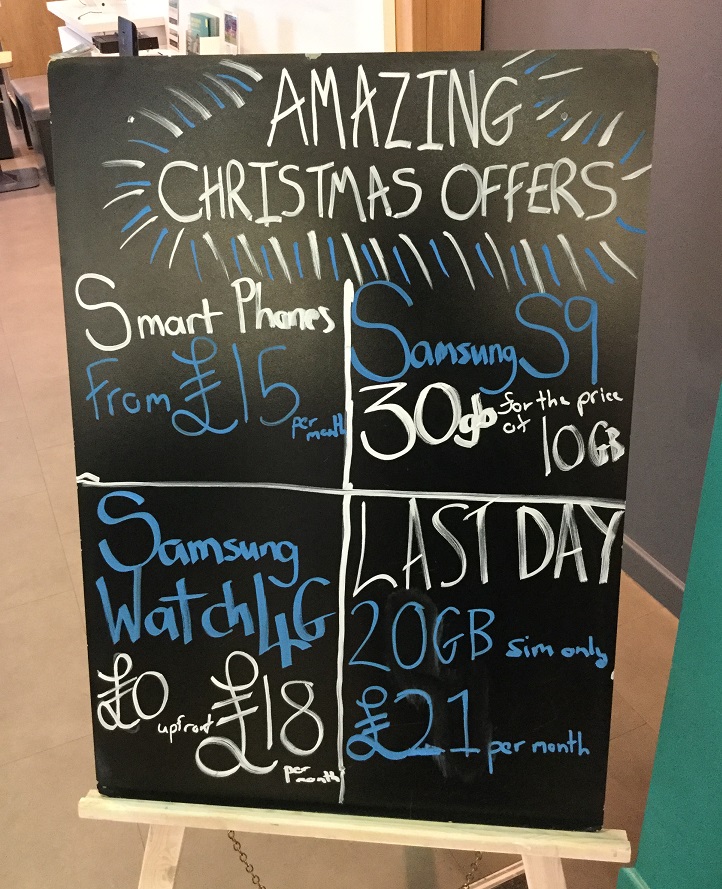 AMAZING
CHRISTMAS OFFERS
Smart Phones
From £15
per
month
Samsung S9
30gb for the price
of 10GB
Samsung
Watch 4G
£0 upfront £18
per
month
LAST DAY
20GB sim only
£21 per month